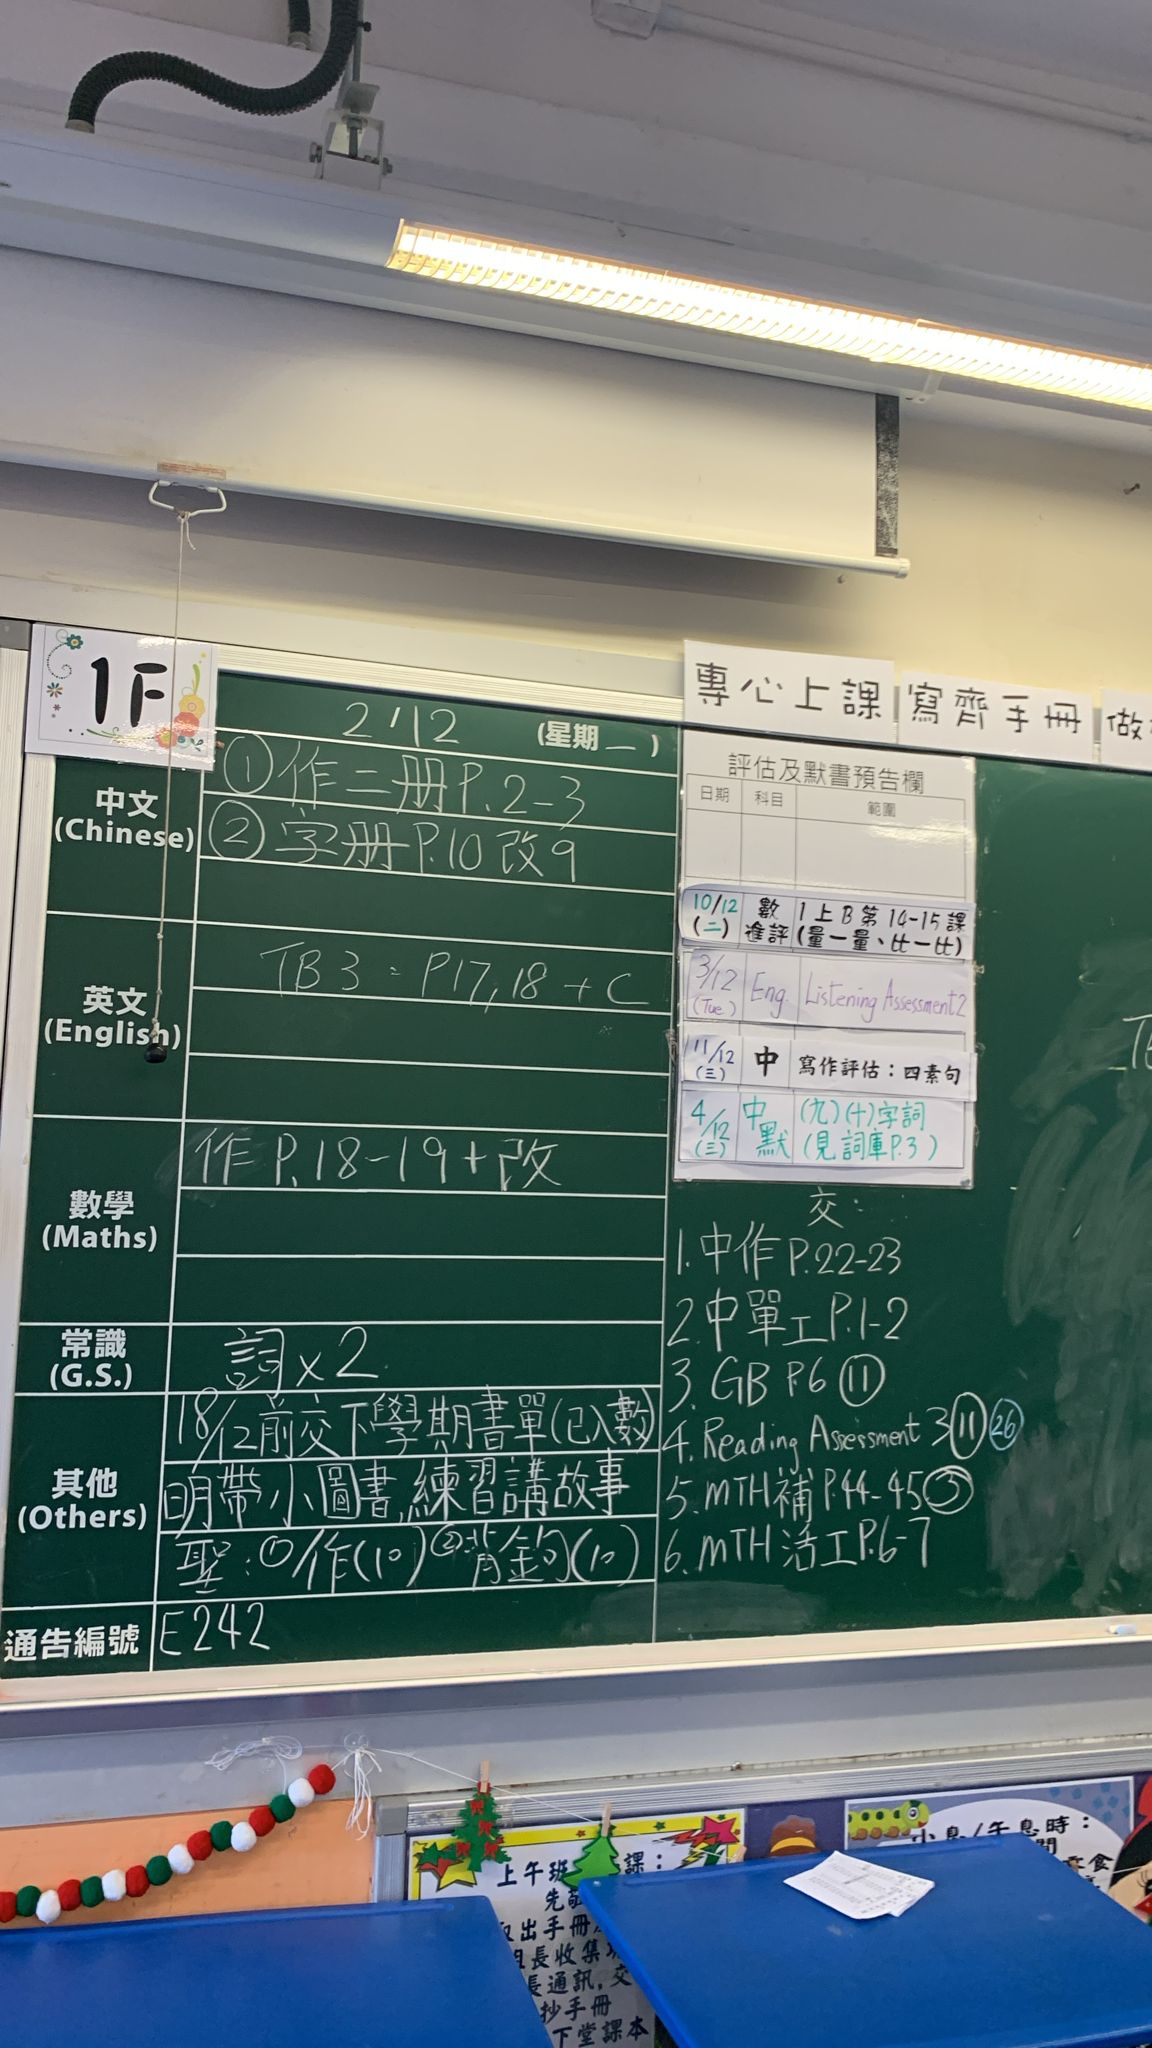 1F
2/12 (星期一)
中文
(Chinese)
① 作二册 P.2-3
② 字册 P.10 改9
英文
(English)
TB3 : P17,18 + C
數學
(Maths)
作 P.18-19 + 改
常識
(G.S.)
詞 x 2
其他
(Others)
18/12前交下學期書單(已入數)
明帶小圖書,練習講故事
聖:①作(10)②背金句(10)
通告編號
E242
專心上課
寫齊手冊
做
評估及默書預告欄
日期 科目 範圍
10/12 (二) 數 進評 1上B第14-15課 (量一量、比一比)
3/12 (Tue) Eng. Listening Assessment 2
11/12 (三) 中 寫作評估:四素句
4/12 (三) 中 默 (九)(十)字詞 (見詞庫P.3)
交:
1. 中作 P.22-23
2. 中單工 P.1-2
3. GB P6 ⑪
4. Reading Assessment 3 ⑪ ㉖
5. MTH 補 P.44-45 ③
6. MTH 活工 P.6-7
上午班 課:
出手冊
長收集
長通訊,交
抄手冊
下堂課本
小息/午息時:
食